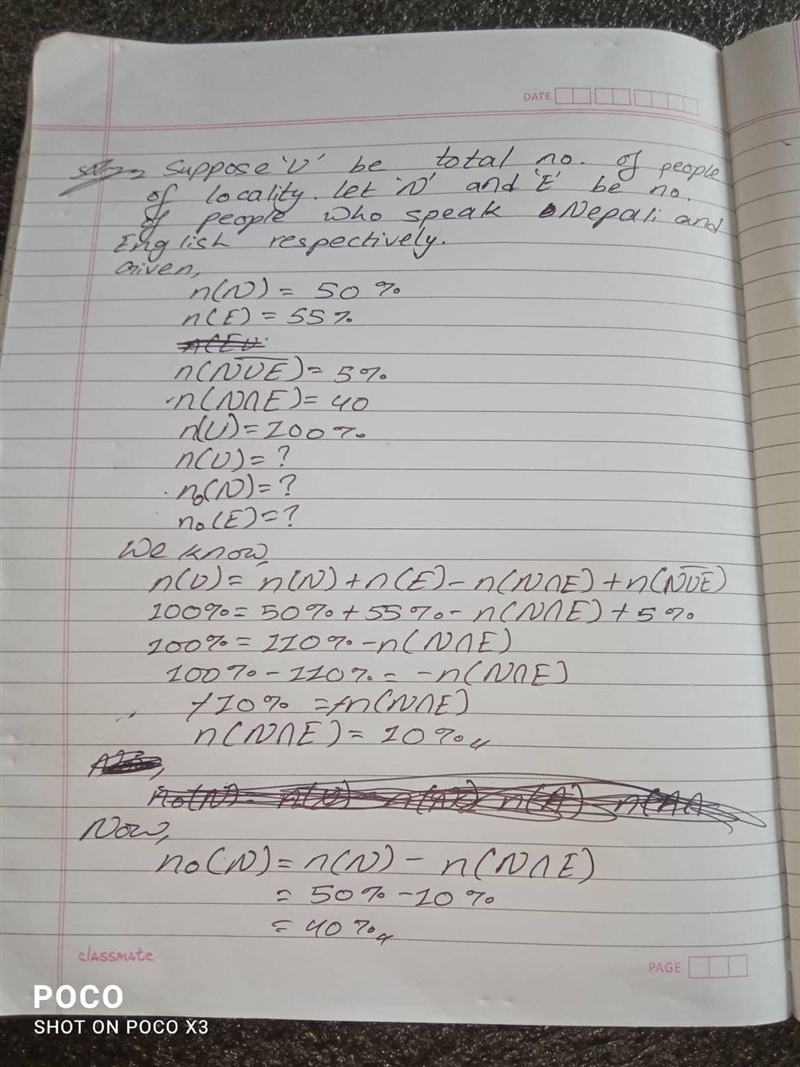 DATE
Suppose 'U' be total no. of people
of locality. let 'N' and 'E' be no.
of people who speak Nepali and
English respectively.
Given,
n(N) = 50 %
n(E) = 55%
n(N̅U̅E̅) = 5%
n(N∩E) = 40
n(U) = 100%
n(U) = ?
n₀(N) = ?
n₀(E) = ?
We know,
n(U) = n(N) + n(E) - n(N∩E) + n(N̅U̅E̅)
100% = 50% + 55% - n(N∩E) + 5%
100% = 110% - n(N∩E)
100% - 110% = -n(N∩E)
+10% = +n(N∩E)
n(N∩E) = 10%
Now,
n₀(N) = n(N) - n(N∩E)
= 50% - 10%
= 40%
classmate
PAGE
POCO
SHOT ON POCO X3